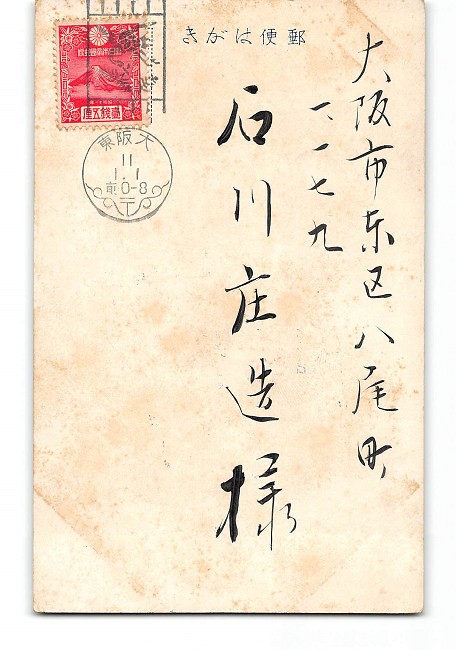 きがは便郵
大阪市東区八尾町
一、一七九
石川庄造様
大日本帝國郵便
壹錢五厘
東阪大
11
1.1
前0-8